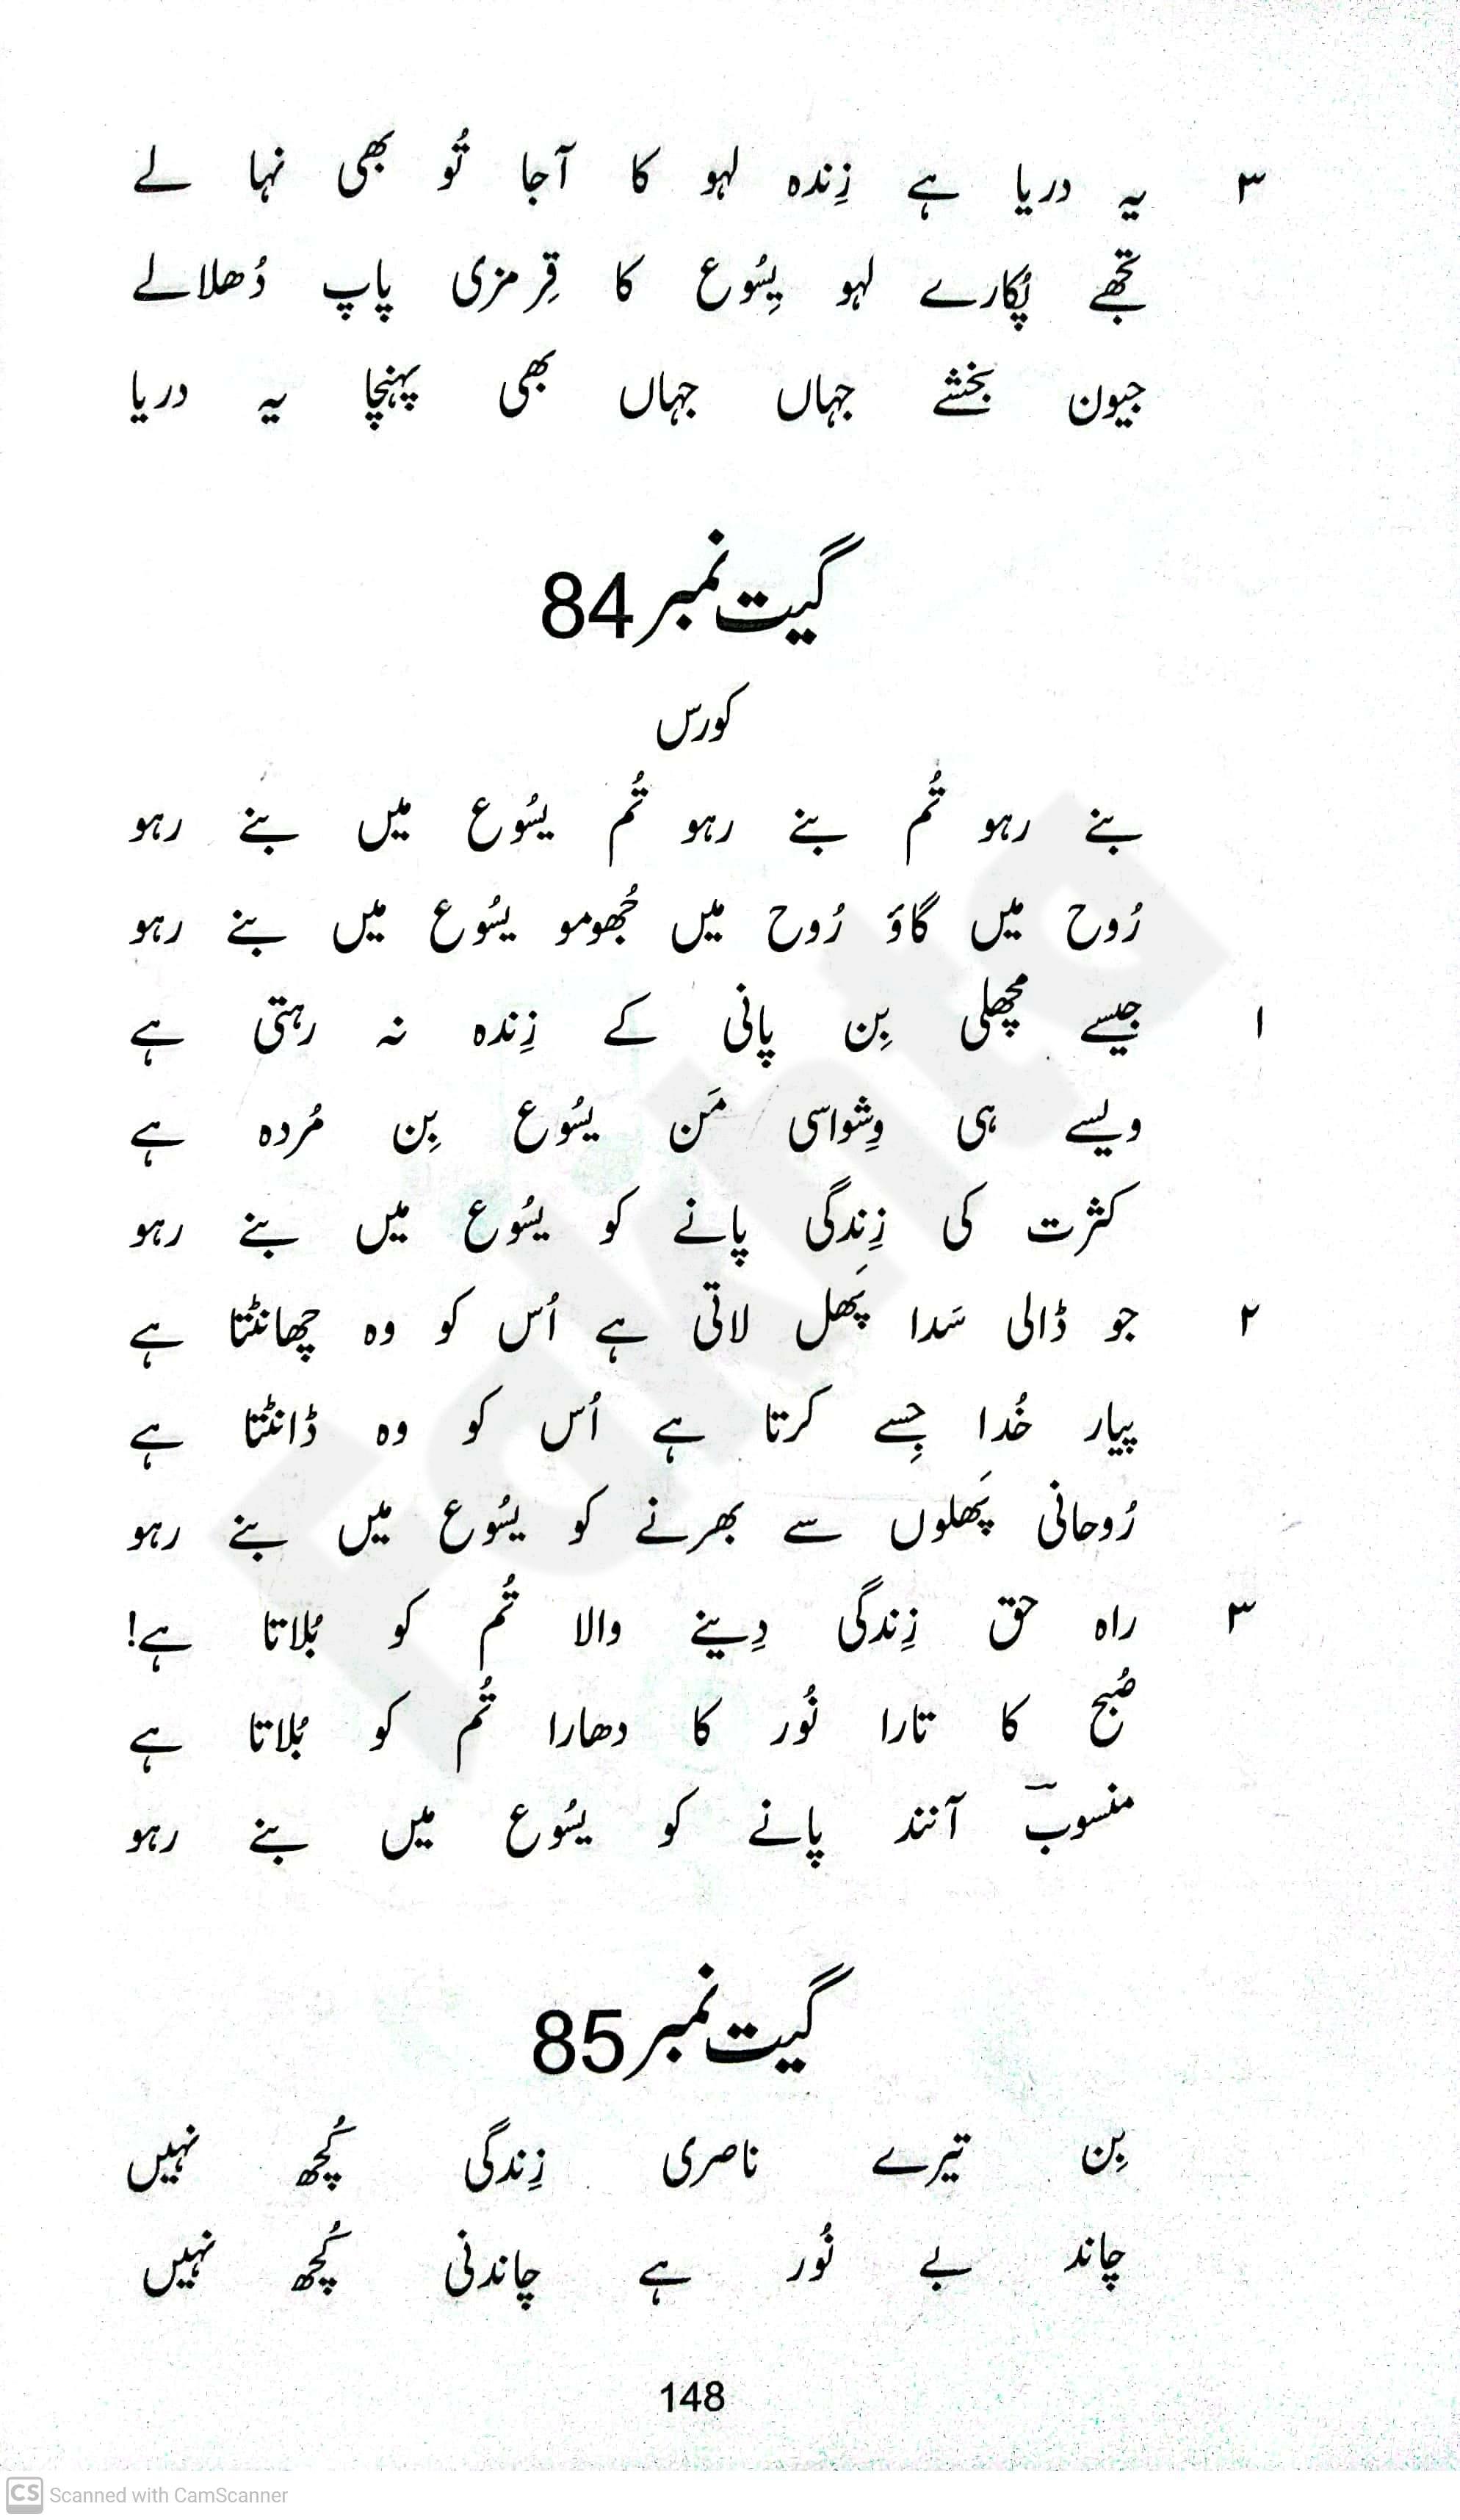 ۳ یہ دریا ہے زِندہ لہو کا آجا تُو بھی نہا لے
تجھے پُکارے لہو یِسُوع کا قِرمزی پاپ دُھلالے
جیون بخشے جہاں جہاں بھی پہنچا یہ دریا
گیت نمبر 84
کورس
بنے رہو تُم بنے رہو تُم یسُوع میں بنے رہو
رُوح میں گاؤ رُوح میں جُھومو یسُوع میں بنے رہو
۱ جیسے مچھلی بِن پانی کے زِندہ نہ رہتی ہے
ویسے ہی وِشواسی مَن یسُوع بِن مُردہ ہے
کثرت کی زِندگی پانے کو یسُوع میں بنے رہو
۲ جو ڈالی سَدا پَھل لاتی ہے اُس کو وہ چھانٹتا ہے
پیار خُدا جِسے کرتا ہے اُس کو وہ ڈانٹتا ہے
رُوحانی پَھلوں سے بھرنے کو یسُوع میں بنے رہو
۳ راہ حق زِندگی دِینے والا تُم کو بُلاتا ہے!
صُبح کا تارا نُور کا دھارا تُم کو بُلاتا ہے
منسوبؔ آنند پانے کو یسُوع میں بنے رہو
گیت نمبر 85
بِن تیرے ناصری زِندگی کُچھ نہیں
چاند بے نُور ہے چاندنی کُچھ نہیں
148
CS Scanned with CamScanner